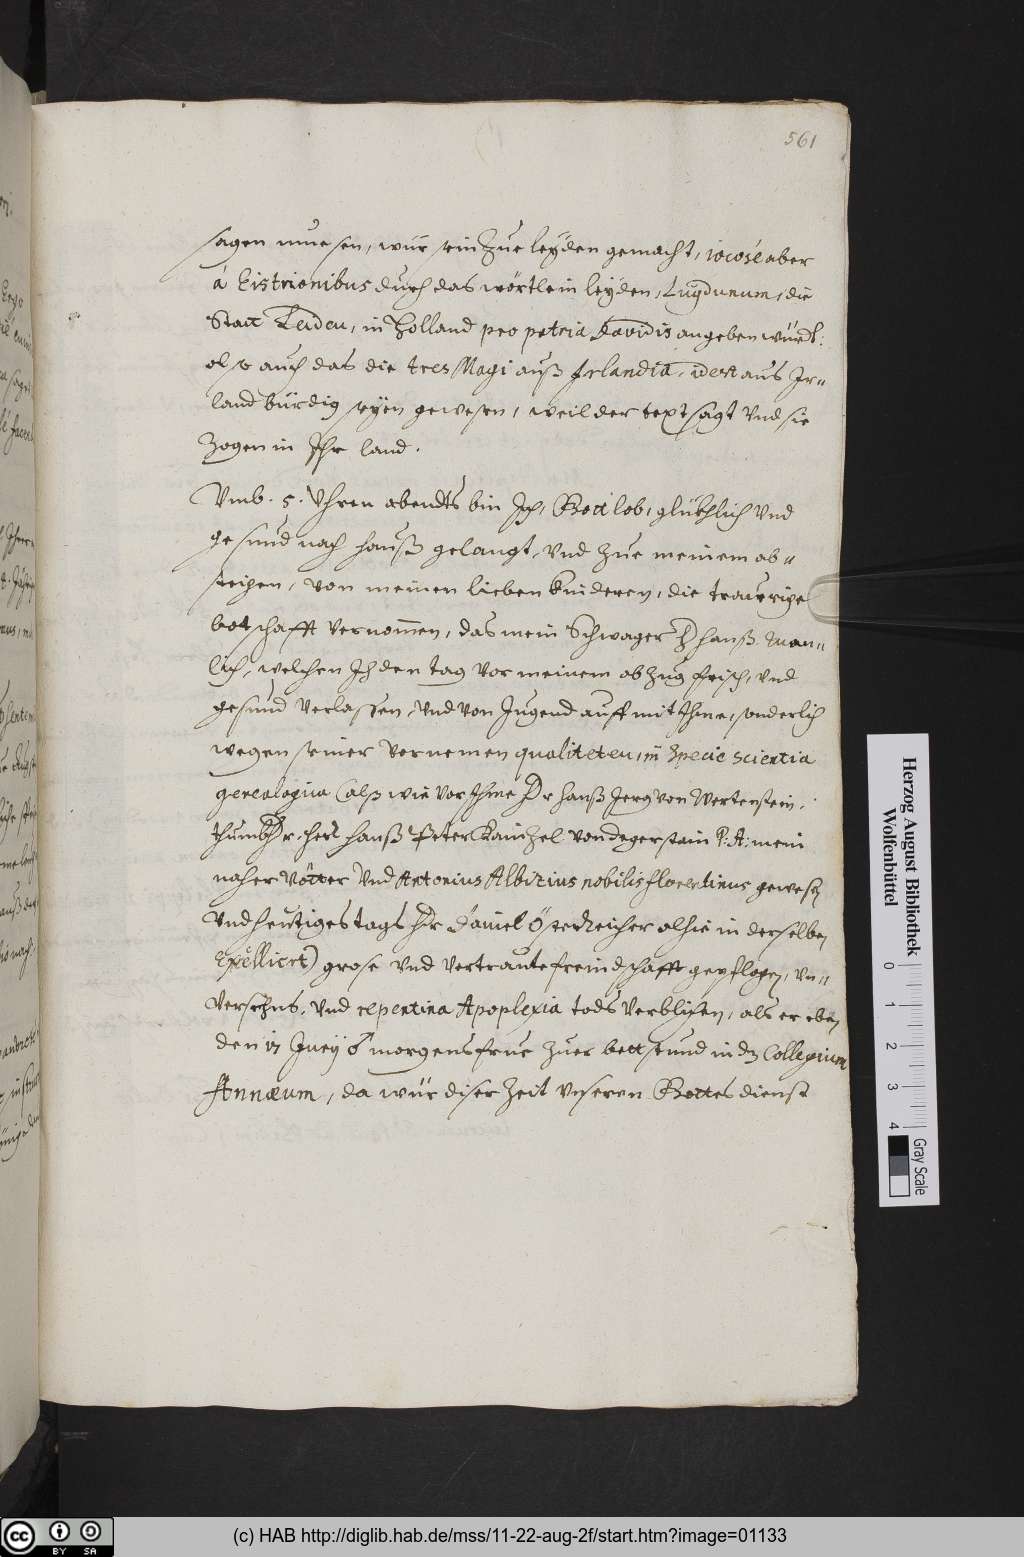 561
sagen muesen, wür sein Zue leÿden gemacht, iocosè aber
á Histrionibus durch das wörtlein leÿden, Lugdunum, die
Statt Leiden, in Holland pro patria Davidis angeben würdt:
also auch das die tres Magi auß Irlandia, idest aus Ir-
land bürdig seÿen gewesen, weil der text sagt Vnd sie
Zogen in Ihr land.
Vmb. 5. Vhren abendts bin Ich, Gott lob, glükhlich Vnd
gesund nach hauß gelangt, Vnd Zue meinem ab-
steigen, von meinen lieben kinderen, die traurige
botschafft Vernommen, das mein Schwager H hanß Man-
lich, welchen Ich den tag Vor meinem abZug frisch, Vnd
gesund Verlassen, Vnd von Jugend auff mit Ihme, sonderlich
wegen seiner Vornemen qualiteten, in Specie scientia
genealogica (alß wie Vor Ihme Hr hanß Jerg von Wertenstein,
thumbHr, herr hanß Peter KainZel von degerstain P: A: mein
naher Vötter Vnd Antonius Albizius nobilis florentinus gewesen
Vnd heutiges tags Hr Daniel Österreicher alhie in derselben
Excelliert) grose Vnd Vertraute freindschafft gepflogen, Vn-
Versehns, Vnd repentina Apoplexia tods Verblichen, als er eben
den 17 Junÿ 6 morgens frue Zuer bettstund in dz Collegium
Annæum, da wür diser Zeit Vnseren Gottes dienst
Herzog August Bibliothek
Wolfenbüttel
0 1 2 3 4
Gray Scale
cc BY SA
(c) HAB http://diglib.hab.de/mss/11-22-aug-2f/start.htm?image=01133